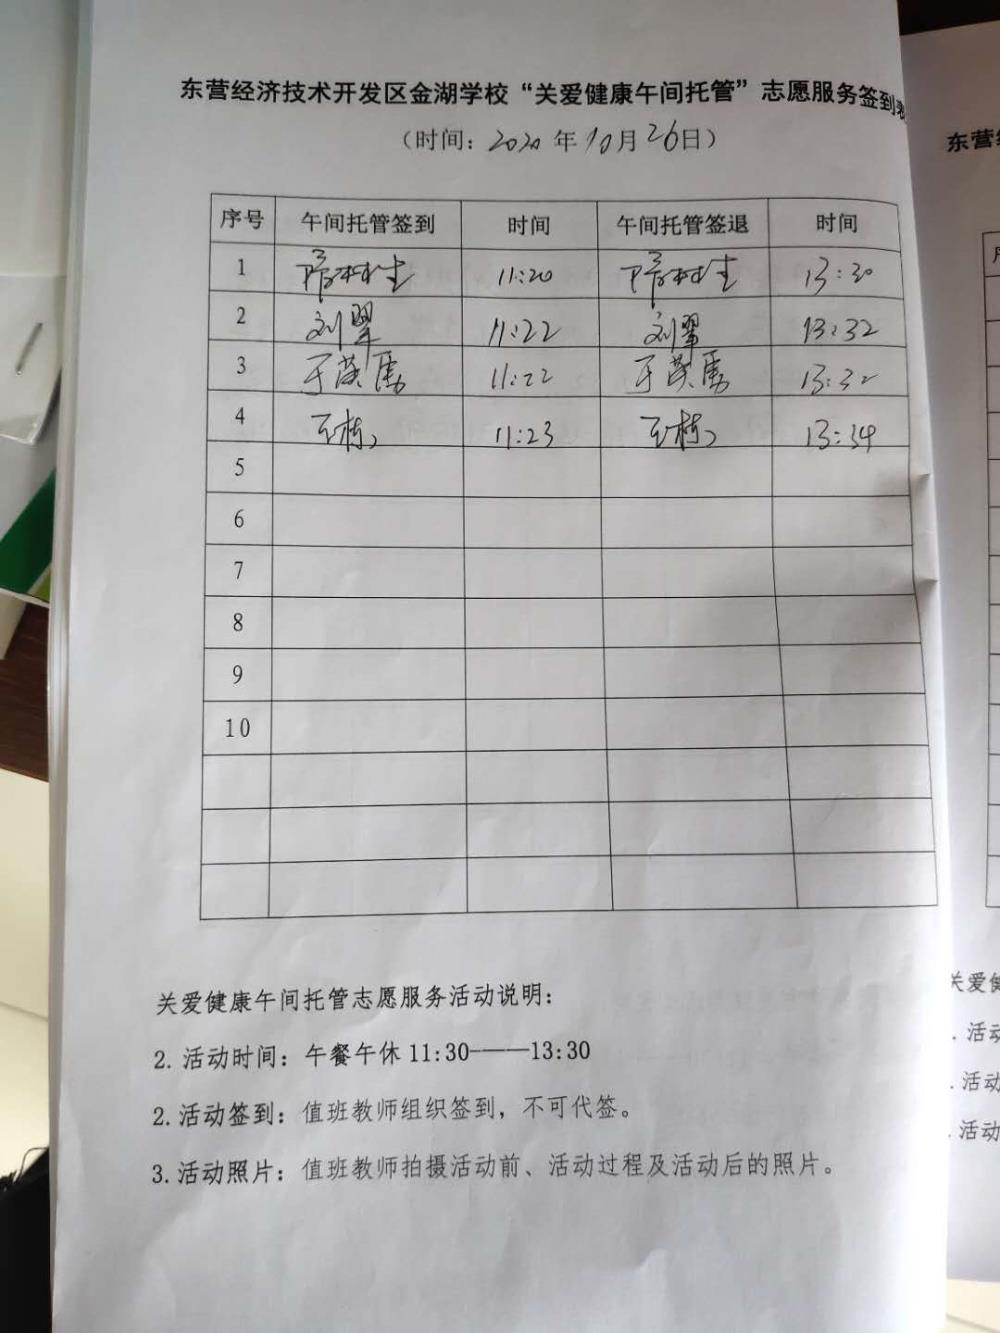 东营经济技术开发区金湖学校“关爱健康午间托管”志愿服务签到表
（时间：2020年10月26日）
序号 午间托管签到 时间 午间托管签退 时间
1 11:20 13:30
2 刘翠 11:22 刘翠 13:32
3 于英勇 11:22 于英勇 13:32
4 王楠 11:23 王楠 13:34
5
6
7
8
9
10
关爱健康午间托管志愿服务活动说明：
2.活动时间：午餐午休11:30——13:30
2.活动签到：值班教师组织签到，不可代签。
3.活动照片：值班教师拍摄活动前、活动过程及活动后的照片。
东营
关爱健
.活动
.活动
.活动